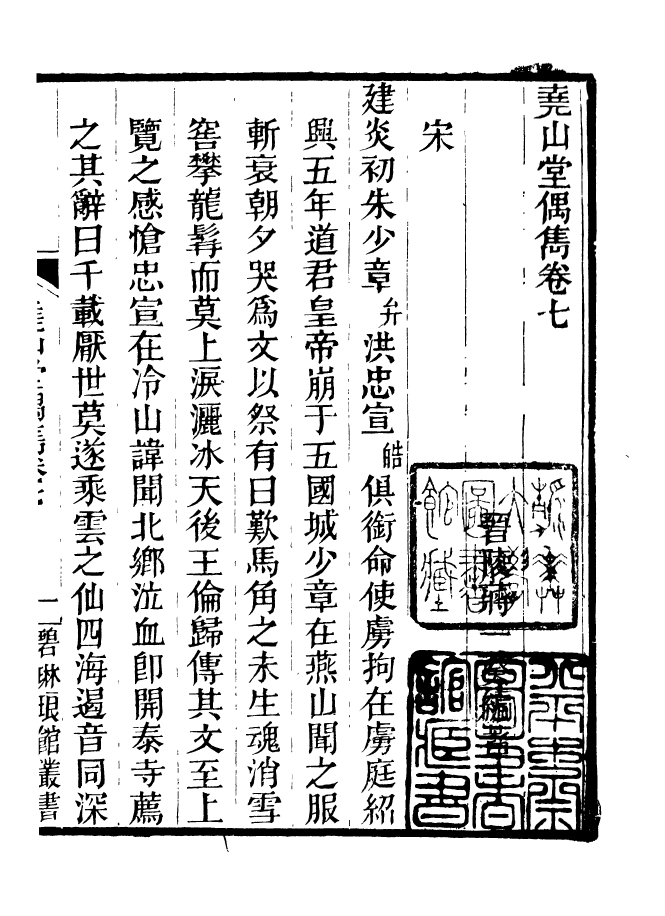 堯山堂偶雋卷七
晉陵蔣一葵編著
宋
建炎初朱少章弁洪忠宣皓俱銜命使虜拘在虜庭紹
興五年道君皇帝崩于五國城少章在燕山聞之服
斬衰朝夕哭爲文以祭有曰歎馬角之未生魂消雪
窖攀龍髯而莫上淚灑冰天後王倫歸傳其文至上
覽之感愴忠宣在冷山諱聞北鄉泣血卽開泰寺薦
之其辭曰千載厭世莫遂乘雲之仙四海遏音同深
堯山堂偶雋卷七 一 碧琳琅館叢書